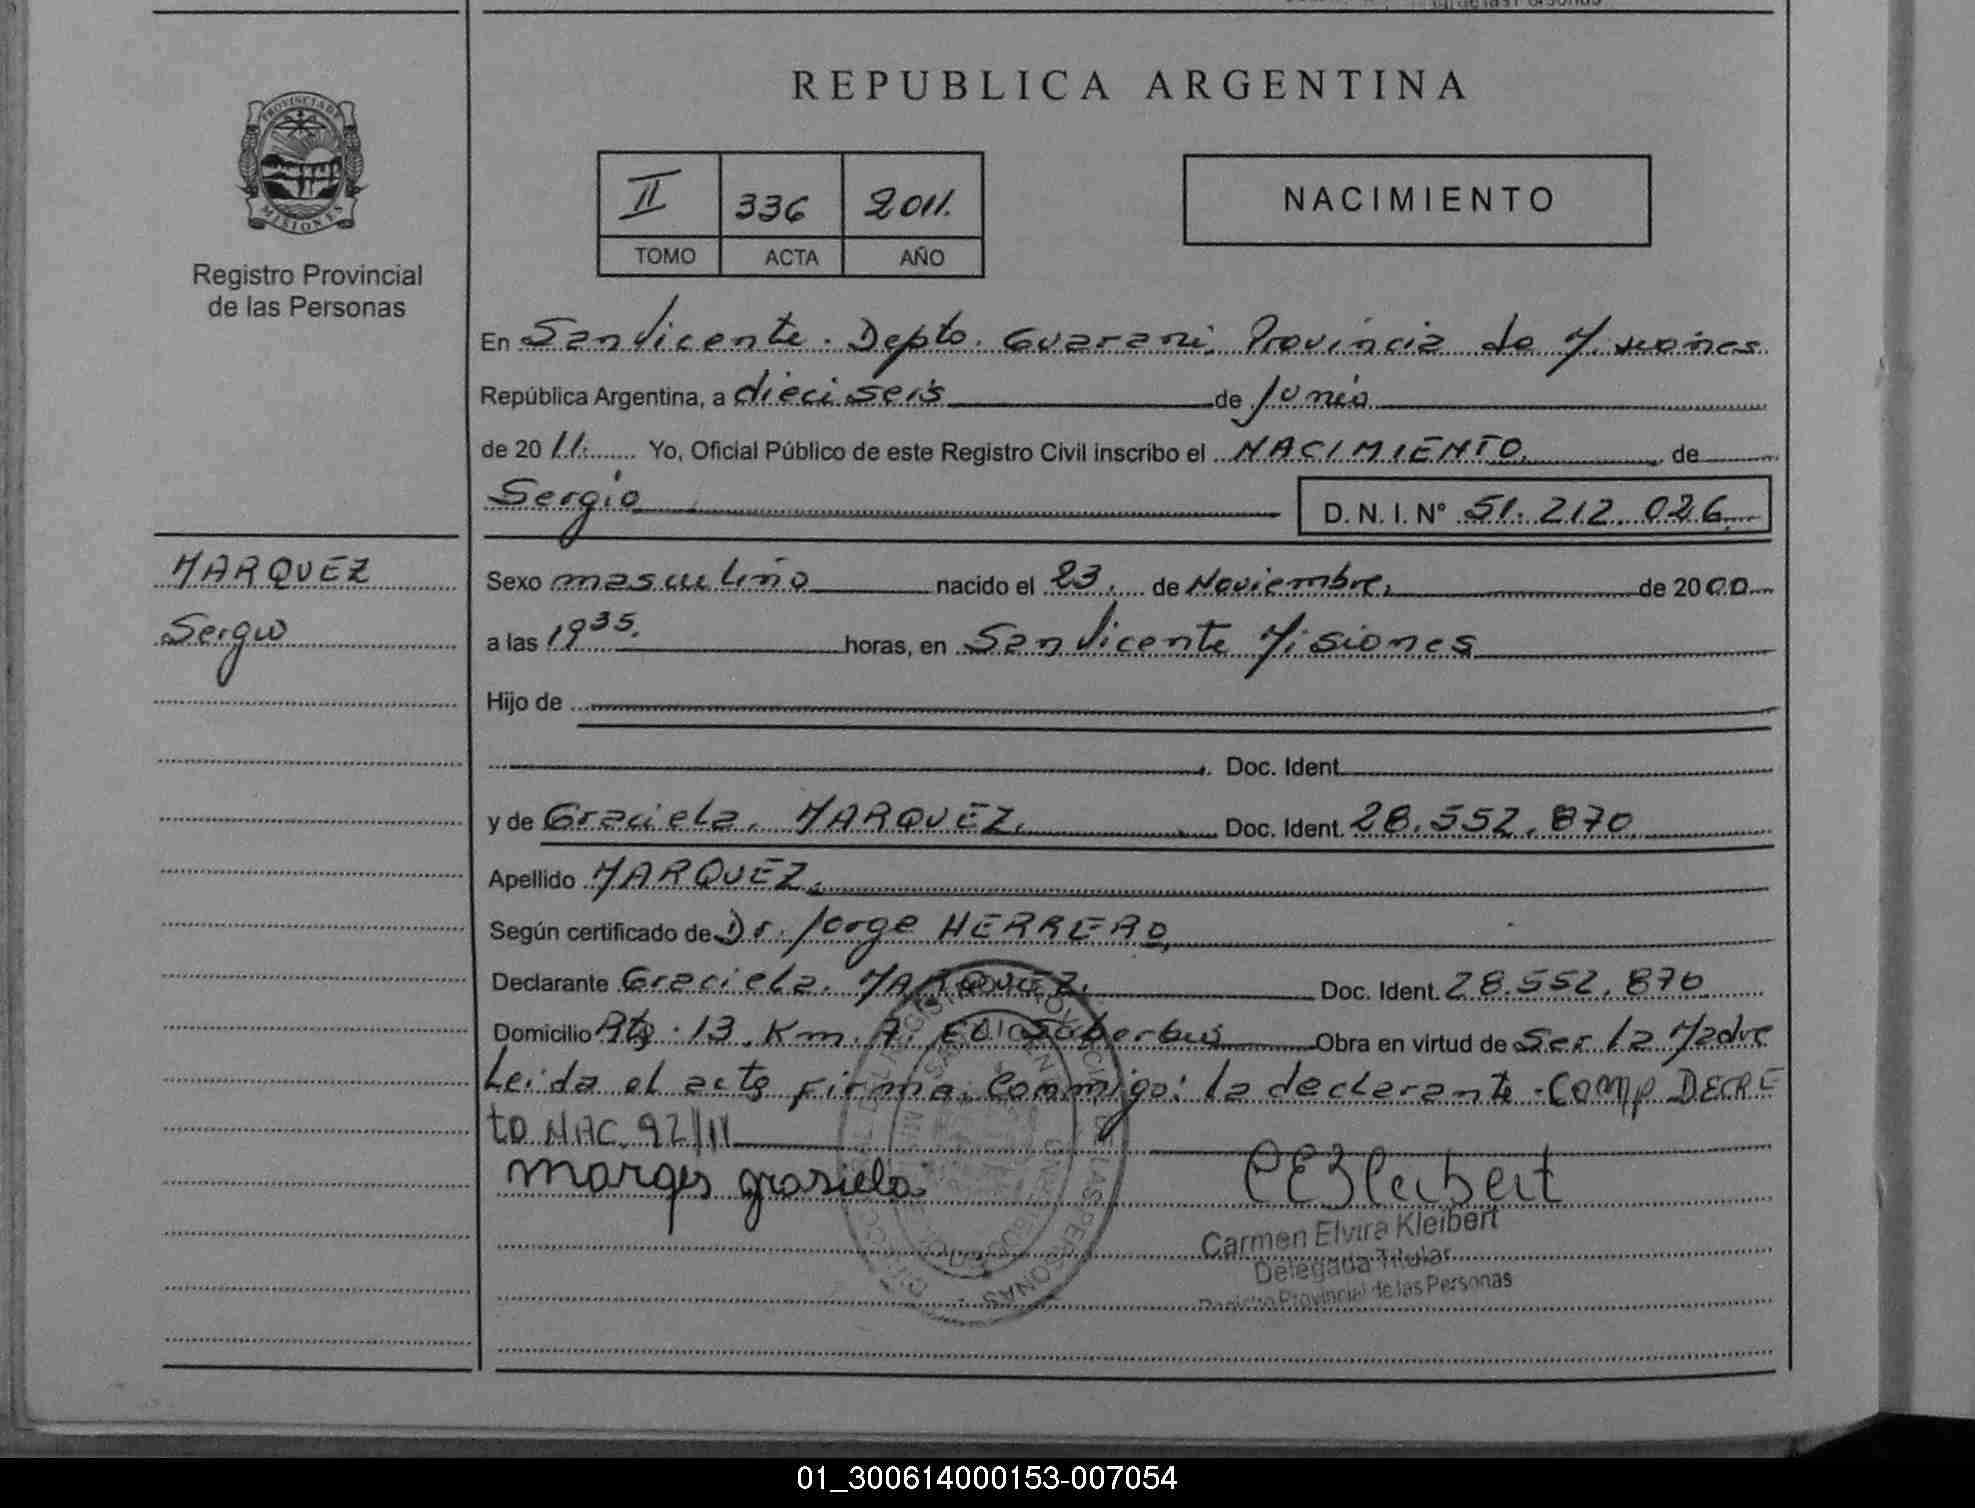 REPUBLICA ARGENTINA
PROVINCIA DE
MISIONES
Registro Provincial
de las Personas
II 336 2011.
TOMO ACTA AÑO
NACIMIENTO
En San Vicente. Depto. Guarani. Provincia de Misiones
República Argentina, a dieciseis de Junio
de 2011. Yo, Oficial Público de este Registro Civil inscribo el NACIMIENTO. de
Sergio D. N. I. N° 51.212.026.
MARQUEZ
Sergio
Sexo masculino nacido el 23. de Noviembre. de 2000
a las 19 35. horas, en San Vicente Misiones
Hijo de
Doc. Ident.
y de Graciela. MARQUEZ. Doc. Ident. 28.552.870
Apellido MARQUEZ.
Según certificado de Dr. Jorge HERRERO,
Declarante Graciela. MARQUEZ. Doc. Ident. 28.552.870
Domicilio Rta. 13. Km. 7. El Soberbio Obra en virtud de Ser la Madre
Leida el acta firma. Conmigo: la declarante. COMP DECRE
to NAC. 92/11
marqes grasiela CEKleibert
Carmen Elvira Kleibert
Delegada Titular
Registro Provincial de las Personas
01_300614000153-007054